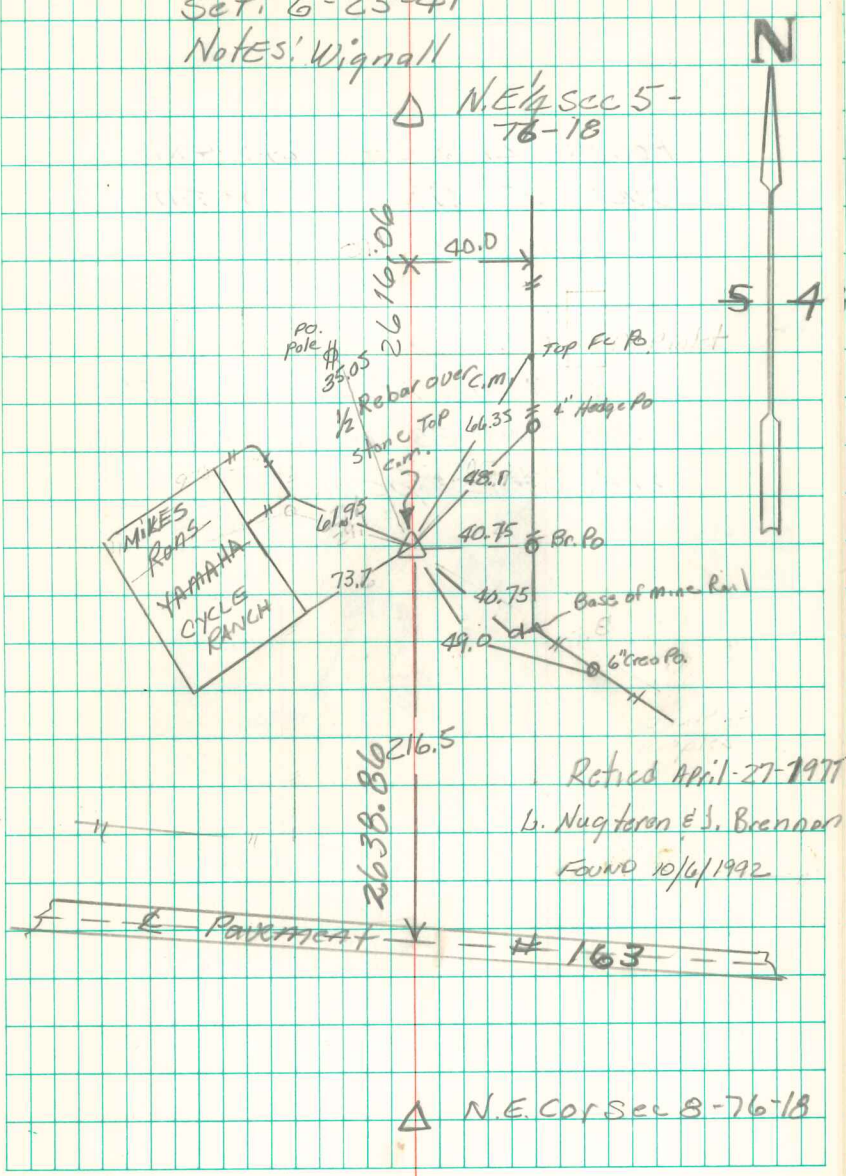 Set: 6-23-41
Notes: Wignall
N
N.E 1/4 Sec 5-
76-18
2616.06
40.0
5 4
Po.
Pole
35.05
Top Fc Po.
1/2 Rebar over c.m.
Stone Top
c.m.
66.35
4" Hedge Po
48.11
61.95
40.75
Br. Po
MIKES
RONS
YAMAHA
CYCLE
RANCH
73.7
40.75
Bass of mine Rail
49.0
6" Creo Po.
216.5
2638.86
Retied April-27-1977
L. Nugteren & J. Brennon
FOUND 10/6/1992
℄ Pavement # 163
N.E. Cor Sec 8-76-18